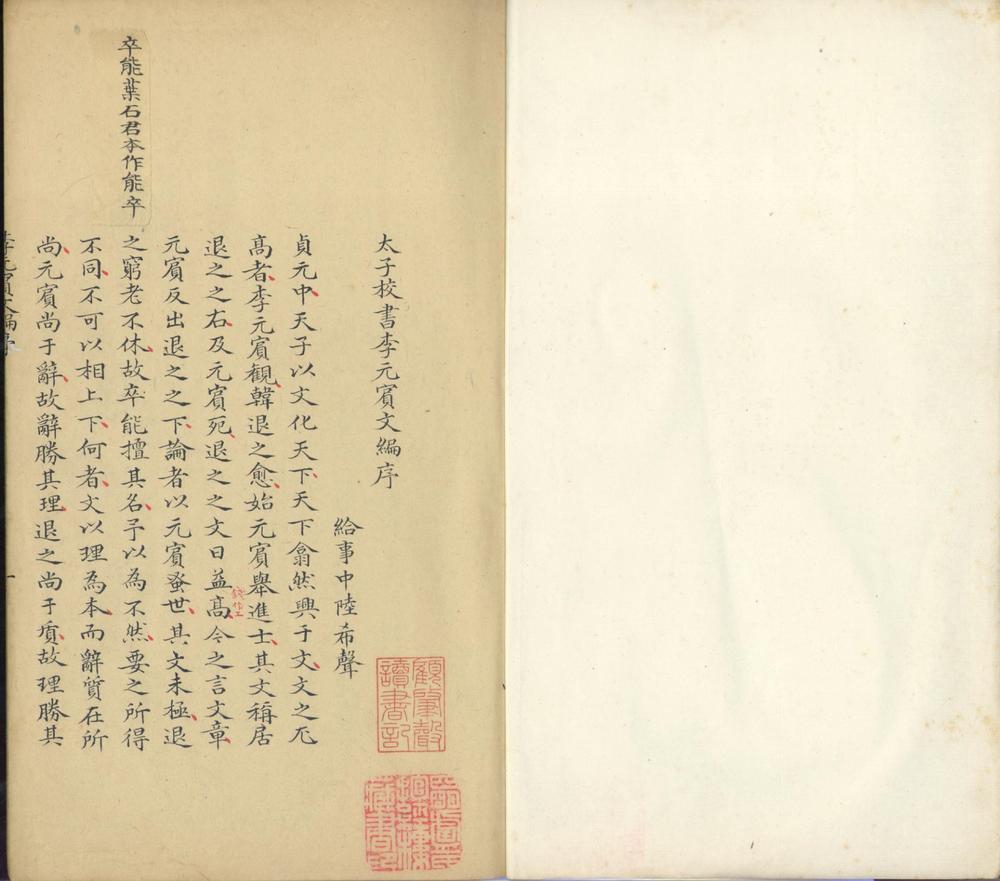 太子校書李元賓文編序
給事中陸希聲
貞元中天子以文化天下天下翕然興于文文之尤
高者李元賓觀韓退之愈始元賓舉進士其文稱居
退之之右及元賓死退之之文日益髙今之言文章
元賓反出退之之下論者以元賓蚤世其文未極退
之窮老不休故卒能擅其名予以為不然要之所得
不同不可以相上下何者文以理為本而辭質在所
尚元賓尚于辭故辭勝其理退之尚于質故理勝其
卒能葉石君本作能卒
李元賓文編序
一
顧肇聲
讀書記